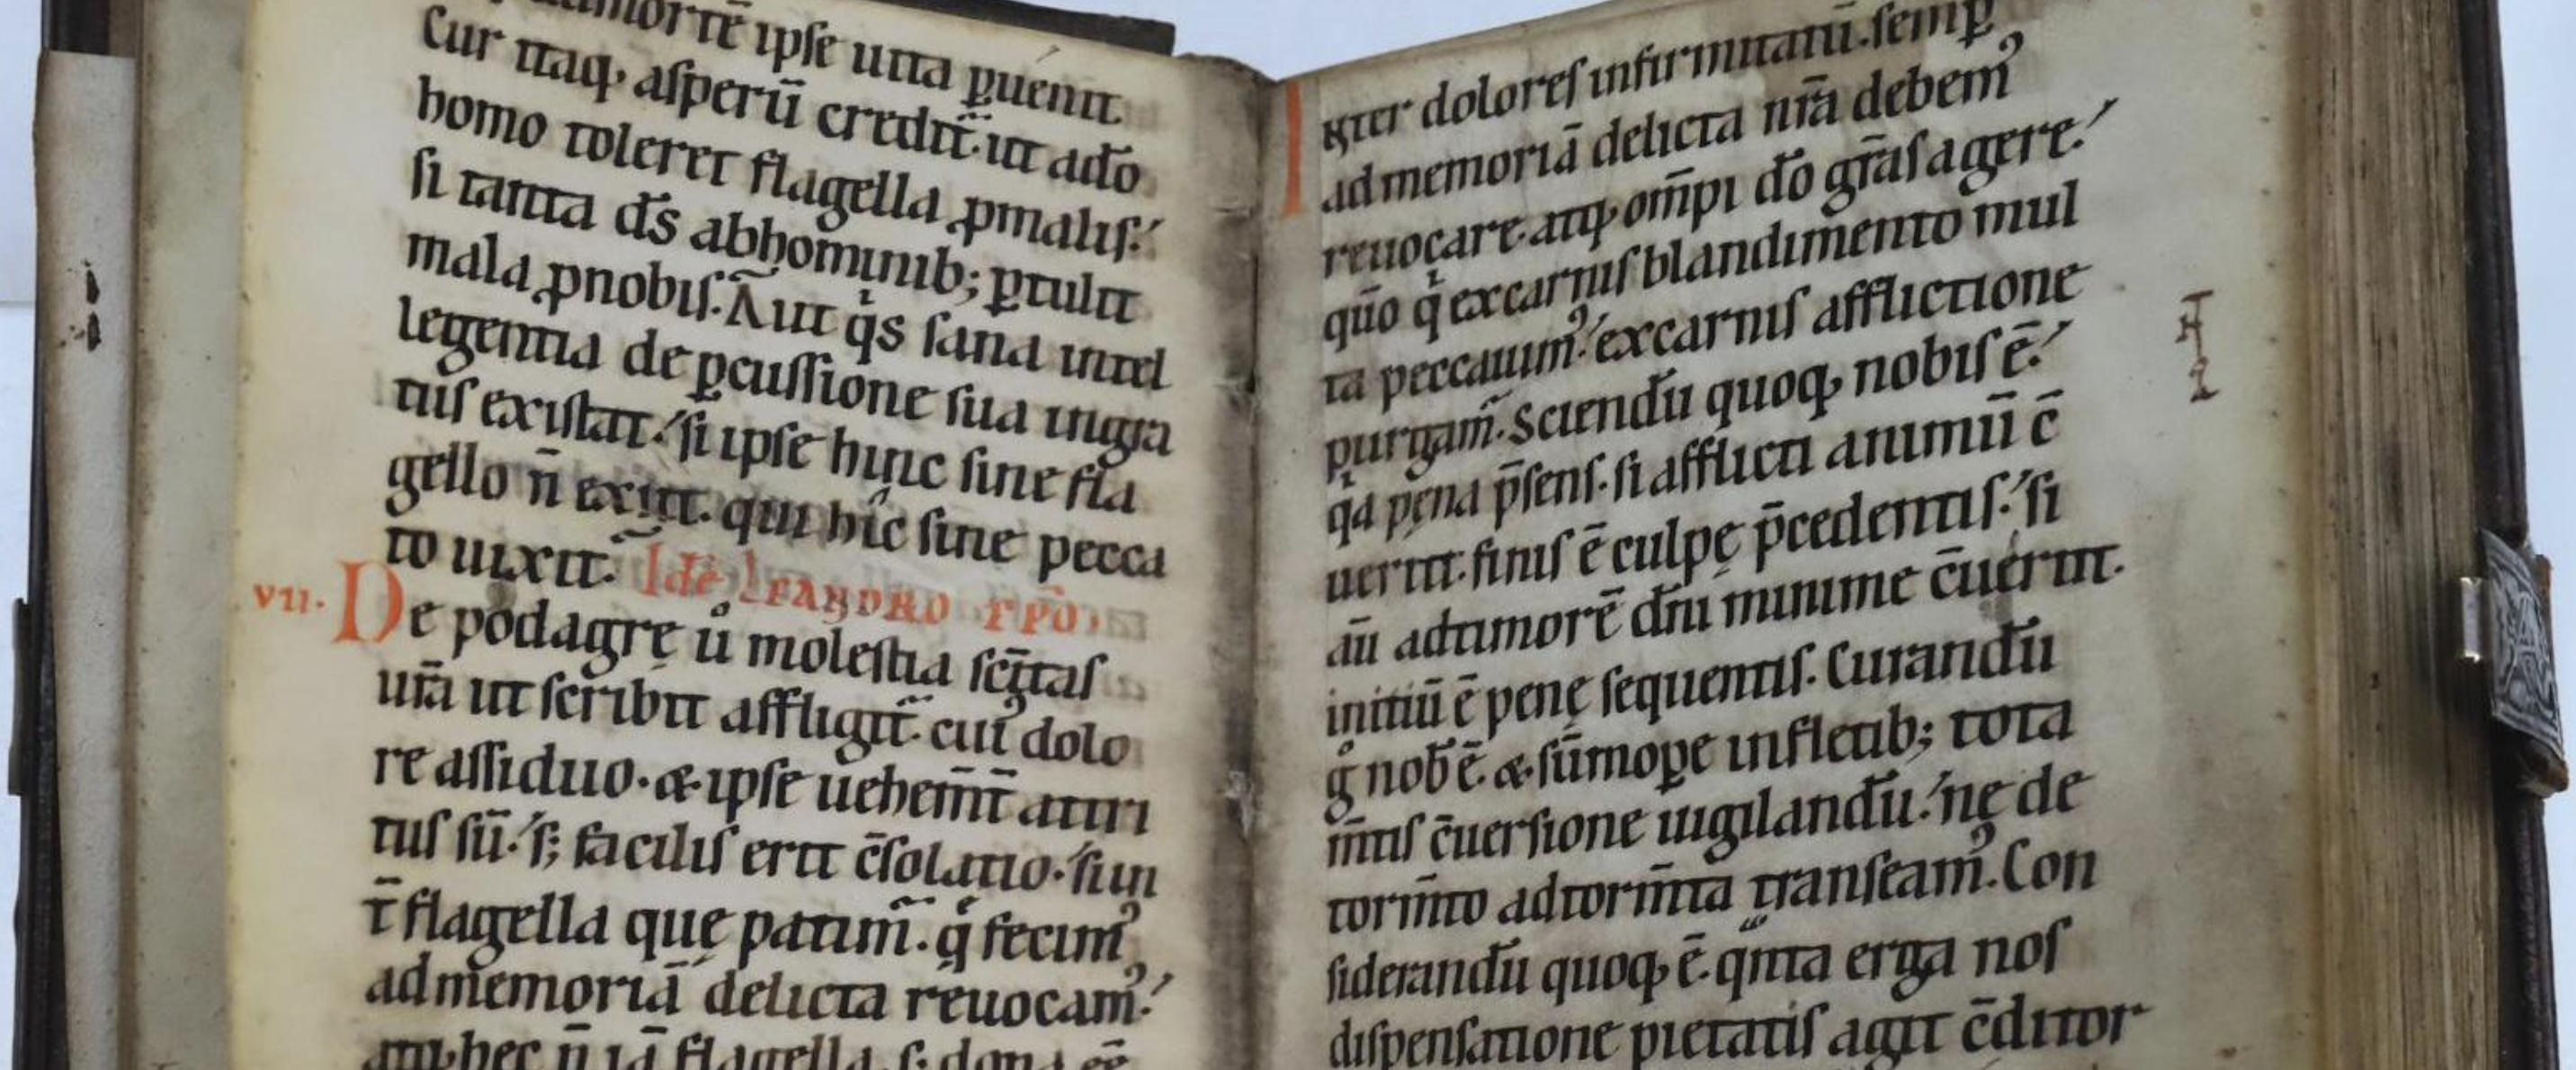 mortē ipse uita ꝑuenit.
Cur itaq; asperū credit̄ ut ad̄o
homo toleret flagella ꝓmalis.
si tanta d̄s abhominib; ꝑtulit
mala ꝓnobis. Aut qͥs sana intel
legentia de ꝑcussione sua ingra
tus existat. si ipse hinc sine fla
gello n̄ exiit. qui hic sine pecca
to uixit. Idē Leandro ep̄o
vii. De podagrę u̾ molestia sc̄itas
ur̄a ut scribit affligit̄. cuiꝰ dolo
re assiduo. & ipse uehem̄t attri
tus sū. s; facilis erit c̄solatio. si in
t̄ flagella quę patim̄. qͣ fecimꝰ
admemoriā delicta reuocamꝰ.
atq; hec n̄ iā flagella. s; dona ēē
Igit̾ dolores infirmitatū. semꝑ
admemoriā delicta nr̄a debemꝰ
reuocare. atq; om̄pi d̄o gr̄as agere.
qūo qͥ excarnis blandimento mul
ta peccauimꝰ. excarnis afflictione
purgam̄. Sciendū quoq; nobis ē.
qͥa pęna p̄sens. si afflicti animū c̄
uertit. finis ē culpę p̄cedentis. si
aū adtimorē dn̄i minime c̄uertit.
initiū ē penę sequentis. Curandū
gͦ nob̄ ē. & sūmoꝑe infletib; tota
m̄tis c̄uersione uigilandū. ne de
torm̄to adtorm̄ta transeamꝰ. Con
siderandū quoq; ē. qͣnta erga nos
dispensatione pietatis agit c̄ditor